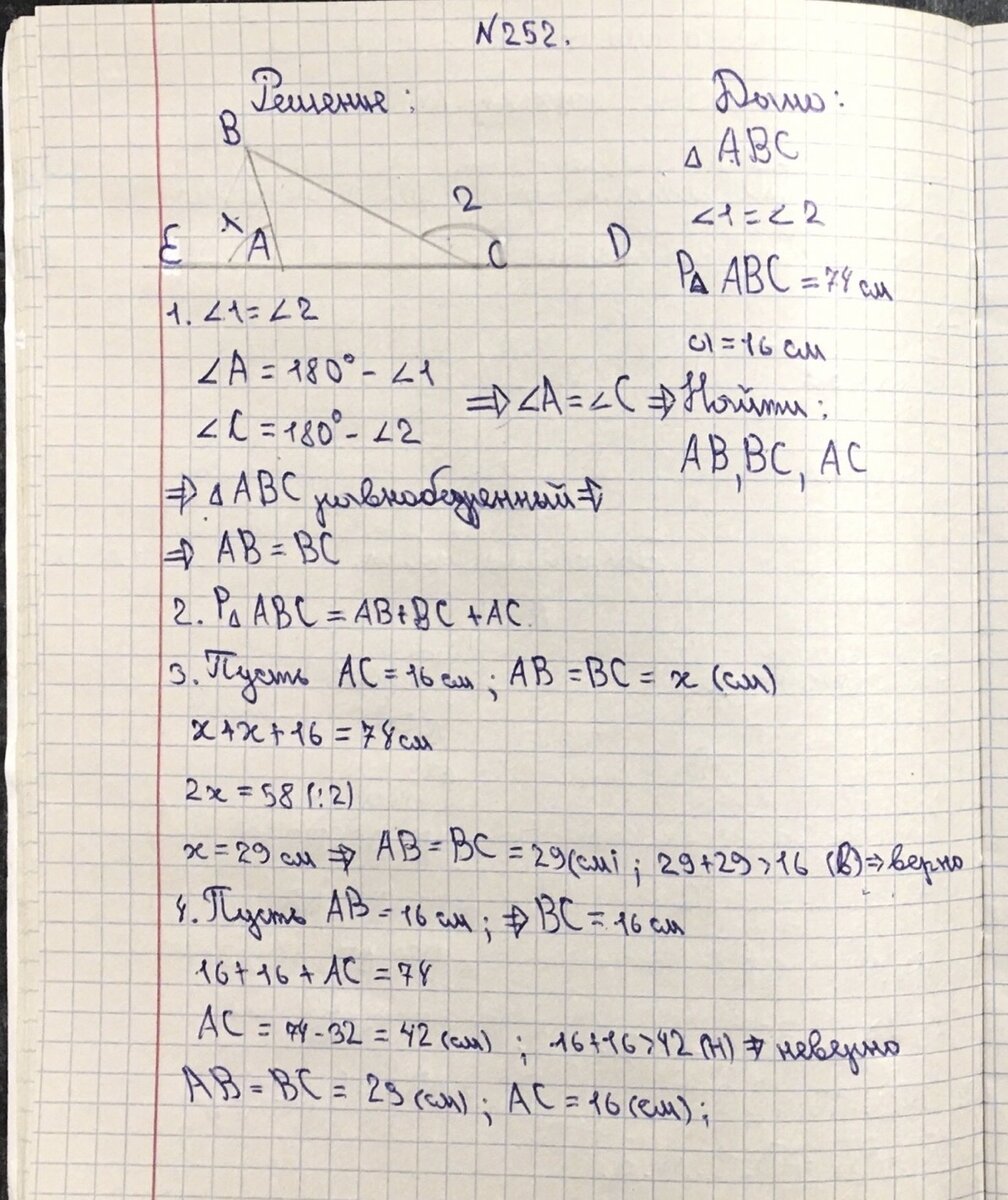 N252.
Решение:
B
1
2
E
A
C
D
Дано:
△ ABC
∠1=∠2
P△ ABC = 74 см
a=16 см
Найти:
AB, BC, AC
1. ∠1=∠2
∠A = 180° - ∠1
∠C = 180° - ∠2
⇒ ∠A = ∠C ⇒
⇒ △ ABC равнобедренный ⇒
⇒ AB = BC
2. P△ ABC = AB+BC+AC.
3. Пусть AC = 16 см ; AB = BC = x (см)
x+x+16 = 74 см
2x = 58 (:2)
x = 29 см ⇒ AB = BC = 29(см) ; 29+29>16 (В) ⇒ верно
4. Пусть AB = 16 см ; ⇒ BC = 16 см
16+16+AC = 74
AC = 74-32 = 42 (см) ; 16+16>42 (Н) ⇒ неверно
AB = BC = 29 (см) ; AC = 16 (см) ;